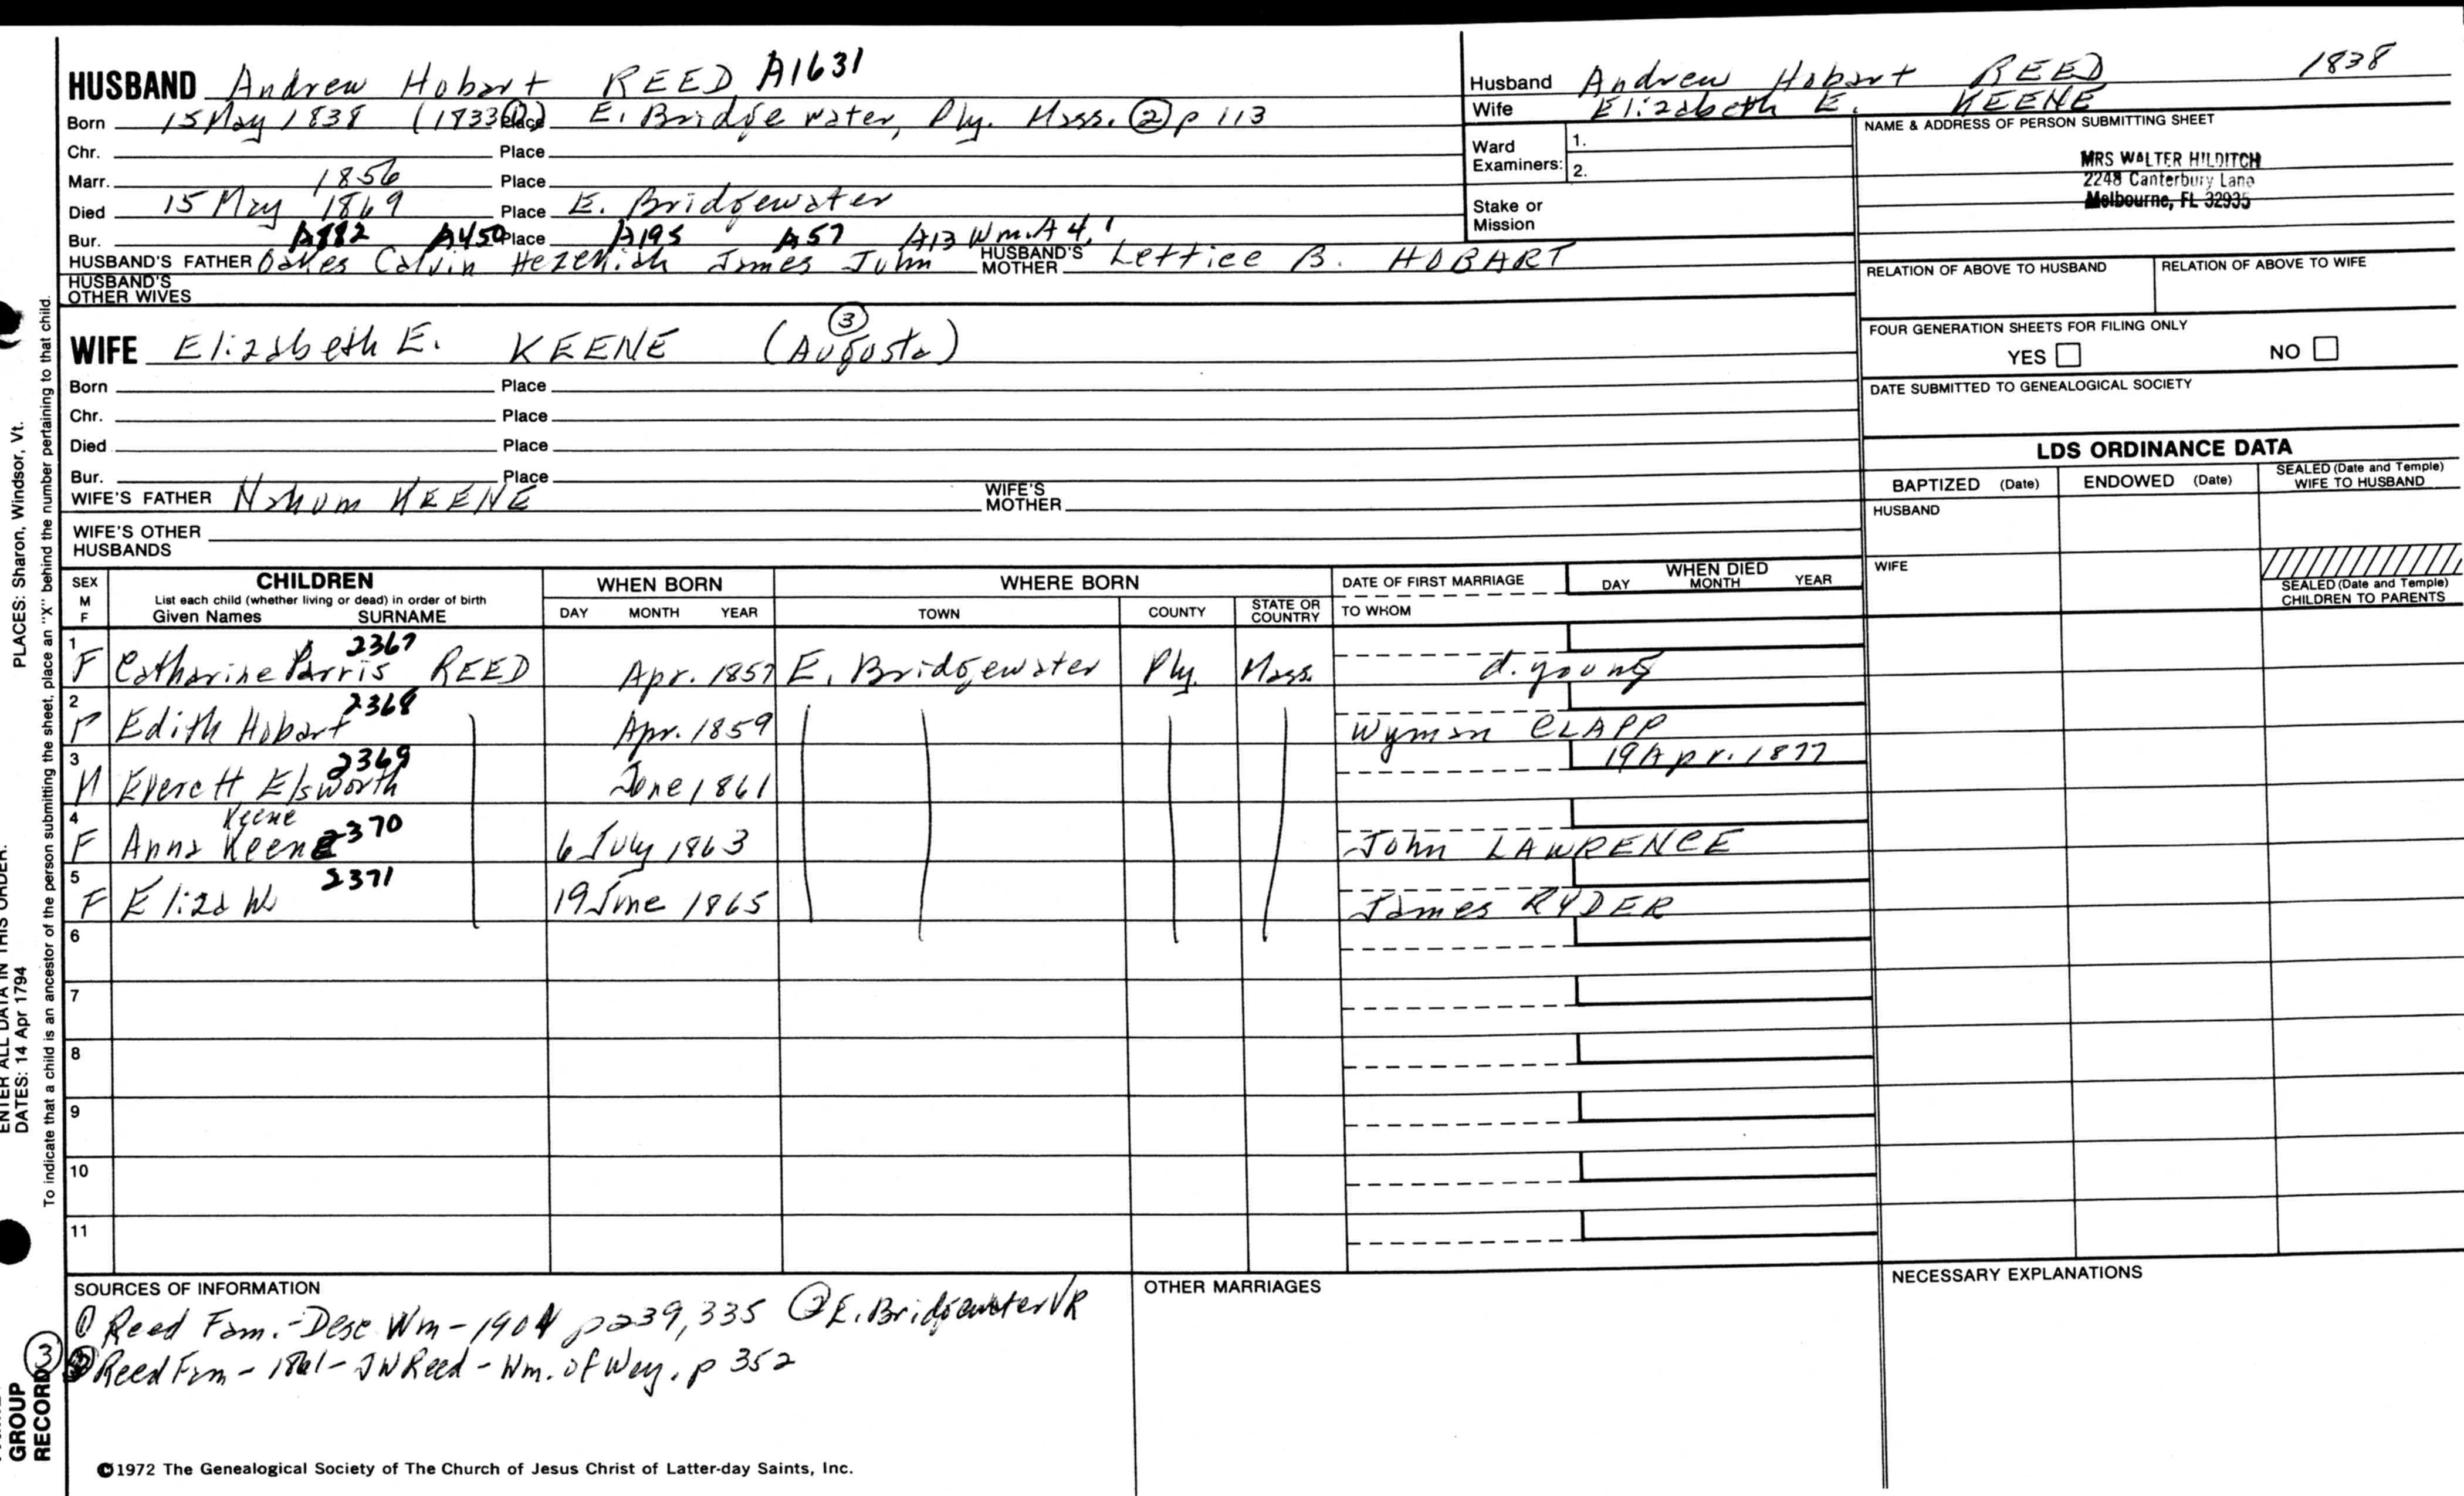 HUSBAND Andrew Hobart REED A1631
Born 15 May 1838 (1833 ①) Place E. Bridgewater, Ply. Mass. ② p 113
Chr. Place
Marr. 1856 Place
Died 15 May 1869 Place E. Bridgewater
Bur. A882 A450 Place A195 A57 A13 Wm.A 4,1
HUSBAND'S FATHER Oakes Calvin Hezekiah James John HUSBAND'S MOTHER Lettice B. HOBART
HUSBAND'S OTHER WIVES
Husband Andrew Hobart REED 1838
Wife Elizabeth E. KEENE
Ward Examiners: 1.
2.
Stake or Mission
NAME & ADDRESS OF PERSON SUBMITTING SHEET
MRS WALTER HILDITCH
2248 Canterbury Lane
Melbourne, FL 32935
RELATION OF ABOVE TO HUSBAND RELATION OF ABOVE TO WIFE
FOUR GENERATION SHEETS FOR FILING ONLY
YES NO
DATE SUBMITTED TO GENEALOGICAL SOCIETY
WIFE Elizabeth E. KEENE (Augusta) ③
Born Place
Chr. Place
Died Place
Bur. Place
WIFE'S FATHER Nahum KEENE WIFE'S MOTHER
WIFE'S OTHER HUSBANDS
LDS ORDINANCE DATA
BAPTIZED (Date) ENDOWED (Date) SEALED (Date and Temple) WIFE TO HUSBAND
HUSBAND
WIFE
SEALED (Date and Temple) CHILDREN TO PARENTS
SEX M F CHILDREN WHEN BORN WHERE BORN DATE OF FIRST MARRIAGE WHEN DIED
List each child (whether living or dead) in order of birth DAY MONTH YEAR
Given Names SURNAME DAY MONTH YEAR TOWN COUNTY STATE OR COUNTRY TO WHOM
1 F Catharine Parris REED 2367 Apr. 1857 E. Bridgewater Ply. Mass. d. young
2 F Edith Hobart 2368 Apr. 1859 Wyman CLAPP
3 M Everett Elsworth 2369 June 1861 19 Apr. 1877
4 F Anna Keene Keene 2370 6 July 1863 John LAWRENCE
5 F Eliza W 2371 19 June 1865 James RYDER
6
7
8
9
10
11
SOURCES OF INFORMATION OTHER MARRIAGES NECESSARY EXPLANATIONS
① Reed Fam.-Desc Wm-1901 p239,335 ② E. Bridgewater VR
③ Reed Fam - 1861 - JW Reed - Wm. of Wey. p 352
©1972 The Genealogical Society of The Church of Jesus Christ of Latter-day Saints, Inc.
PLACES: Sharon, Windsor, Vt.
ENTER ALL DATA IN THIS ORDER:
DATES: 14 Apr 1794
To indicate that a child is an ancestor of the person submitting the sheet, place an "X" behind the number pertaining to that child.
GROUP
RECORD